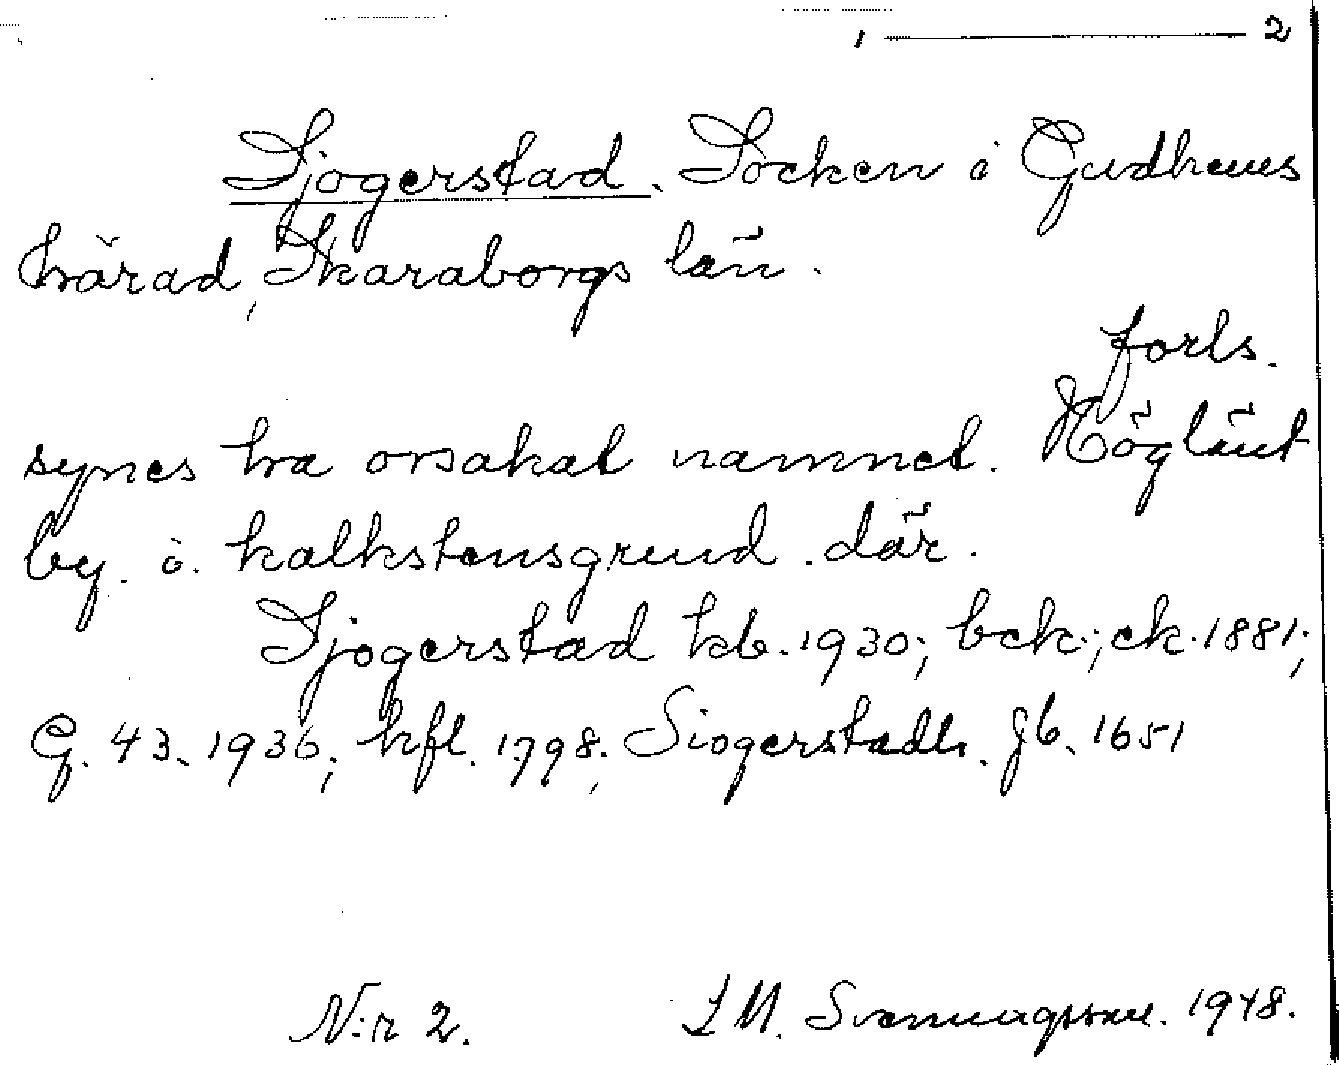 1 — 2
Sjogerstad. Socken i Gudhems
härad, Skaraborgs län.
forls.
synes ha orsakat namnet. Höglänt
by. i. kalkstensgrund. där.
Sjogerstad kb. 1930; bck; ek. 1881;
G. 43. 1936; hfl. 1798; Siogerstadh. jb. 1651
N:r 2. L M. Svenungsson. 1948.